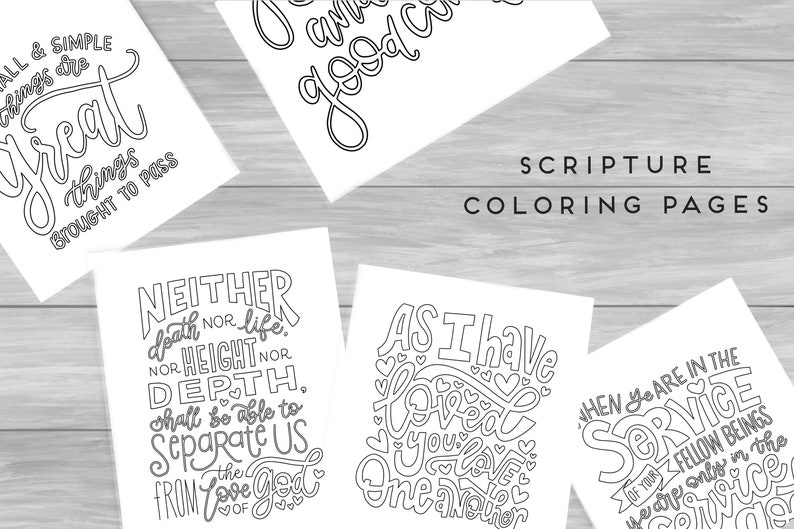 & SIMPLE
things are
great
things
BROUGHT TO PASS
good
SCRIPTURE
COLORING PAGES
NEITHER
death NOR life,
NOR HEIGHT NOR
DEPTH,
shall be able to
separate US
FROM the love OF god
AS I have
loved
you, love
One another
WHEN ye ARE IN THE
SERVICE
OF YOUR FELLOW BEINGS
ye are only in the
service